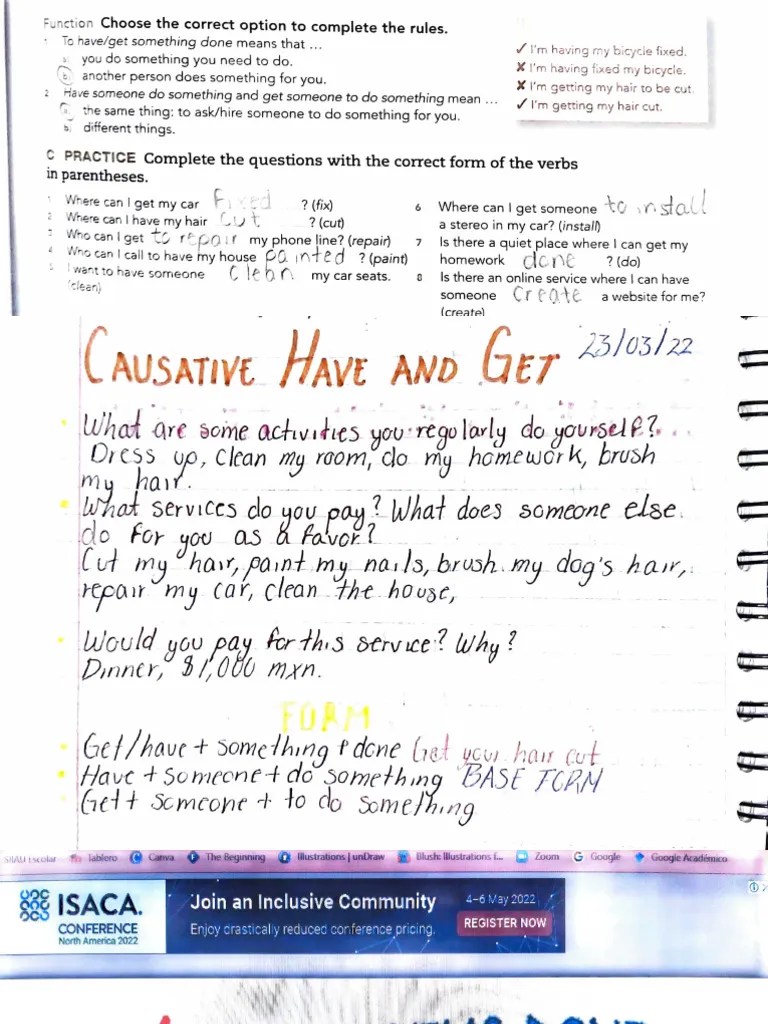 Function Choose the correct option to complete the rules.
1 To have/get something done means that ...
a. you do something you need to do.
b. another person does something for you.
2 Have someone do something and get someone to do something mean ...
a. the same thing: to ask/hire someone to do something for you.
b. different things.
✓ I'm having my bicycle fixed.
✗ I'm having fixed my bicycle.
✗ I'm getting my hair to be cut.
✓ I'm getting my hair cut.
C PRACTICE Complete the questions with the correct form of the verbs
in parentheses.
1 Where can I get my car fixed ? (fix)
2 Where can I have my hair cut ? (cut)
3 Who can I get to repair my phone line? (repair)
4 Who can I call to have my house painted ? (paint)
5 I want to have someone clean my car seats.
(clean)
6 Where can I get someone to install
a stereo in my car? (install)
7 Is there a quiet place where I can get my
homework done ? (do)
8 Is there an online service where I can have
someone create a website for me?
(create)
CAUSATIVE HAVE AND GET 23/03/22
What are some activities you regularly do yourself?
Dress up, clean my room, do my homework, brush
my hair.
What services do you pay? What does someone else
do for you as a favor?
Cut my hair, paint my nails, brush my dog's hair,
repair my car, clean the house,
Would you pay for this service? Why?
Dinner, $1,000 mxn.
FORM
Get/have + something + done Get your hair cut
Have + someone + do something BASE FORM
Get + someone + to do something
Escolar Tablero Canva The Beginning Illustrations | unDraw Blush: Illustrations f... Zoom Google Google Académico
ISACA.
CONFERENCE
North America 2022
Join an Inclusive Community
Enjoy drastically reduced conference pricing.
4–6 May 2022
REGISTER NOW